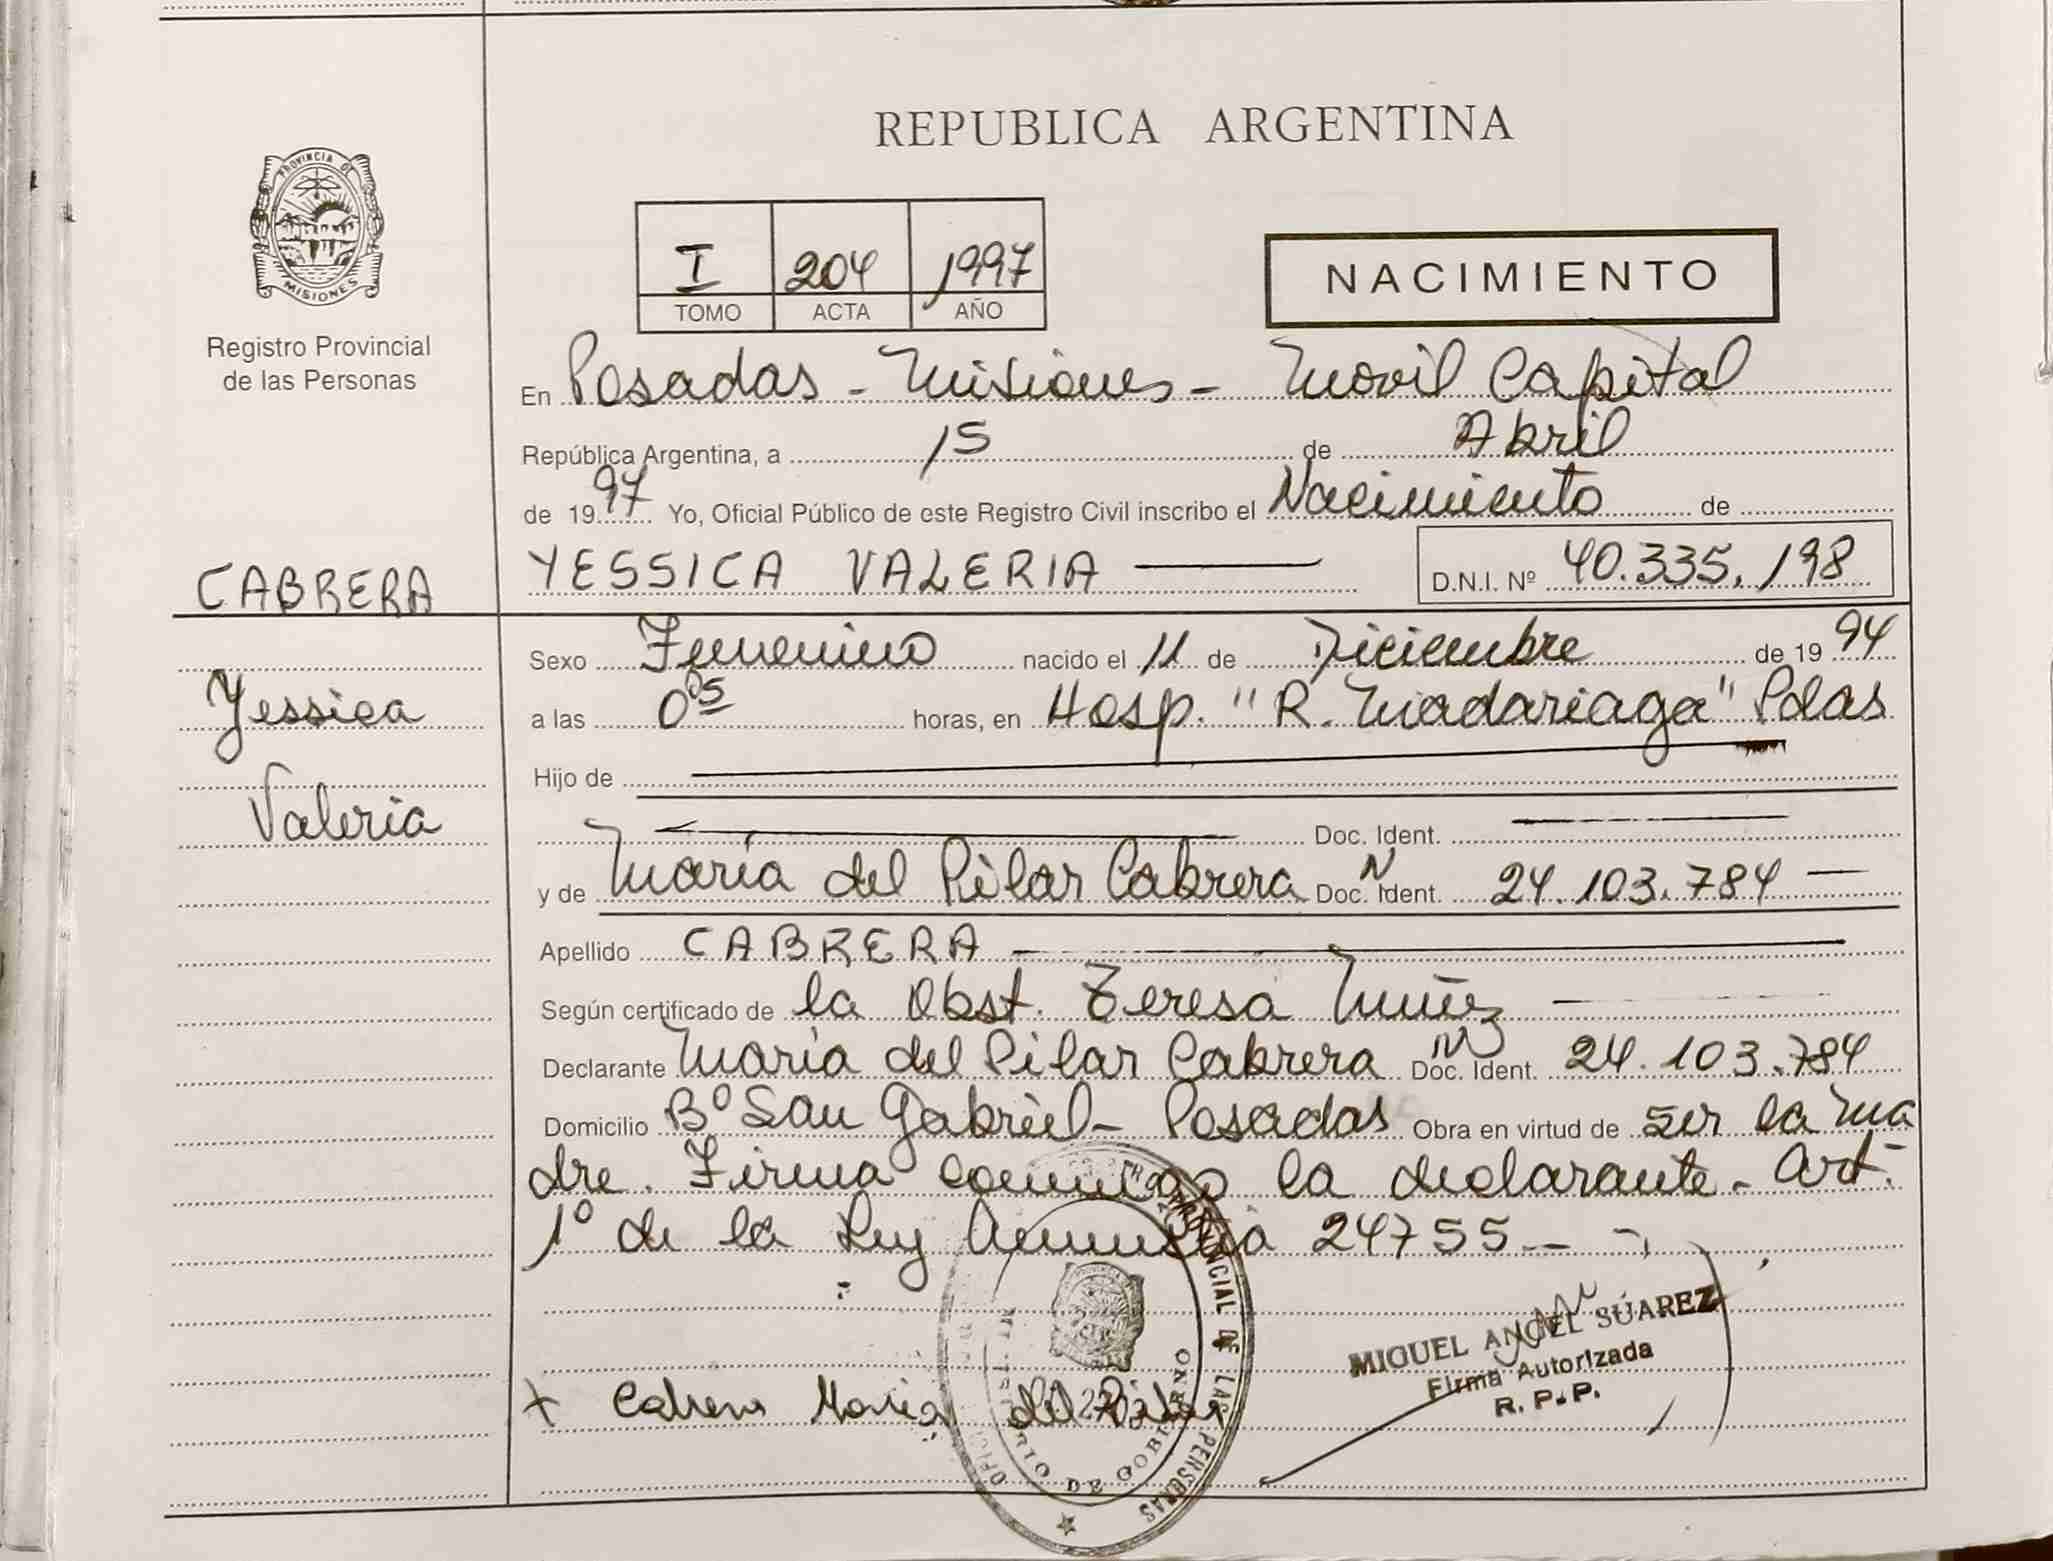 REPUBLICA ARGENTINA
PROVINCIA DE
MISIONES
Registro Provincial
de las Personas
I 204 1997
TOMO ACTA AÑO
NACIMIENTO
En Posadas - Misiones - Movil Capital
República Argentina, a 15 de Abril
de 1997 Yo, Oficial Público de este Registro Civil inscribo el Nacimiento de
CABRERA YESSICA VALERIA D.N.I. Nº 40.335.198
Sexo Femenino nacido el 11 de Diciembre de 1994
Yessica
a las 0 05 horas, en Hosp. "R. Madariaga" Pdas
Hijo de
Valeria
Doc. Ident.
y de María del Pilar Cabrera Doc. Ident. N 24.103.784
Apellido CABRERA
Según certificado de la Obst. Teresa Muñiz
Declarante María del Pilar Cabrera Doc. Ident. N 24.103.784
Domicilio Bº San Gabriel - Posadas Obra en virtud de ser la ma
dre. Firma conmigo la declarante - Art.
1º de la Ley Amnistía 24755
MIGUEL ANGEL SÚAREZ
Firma Autorizada
R. P. P.
x Cabrera María del Pilar
PROVINCIAL DE LAS PERSONAS
DE GOBIERNO